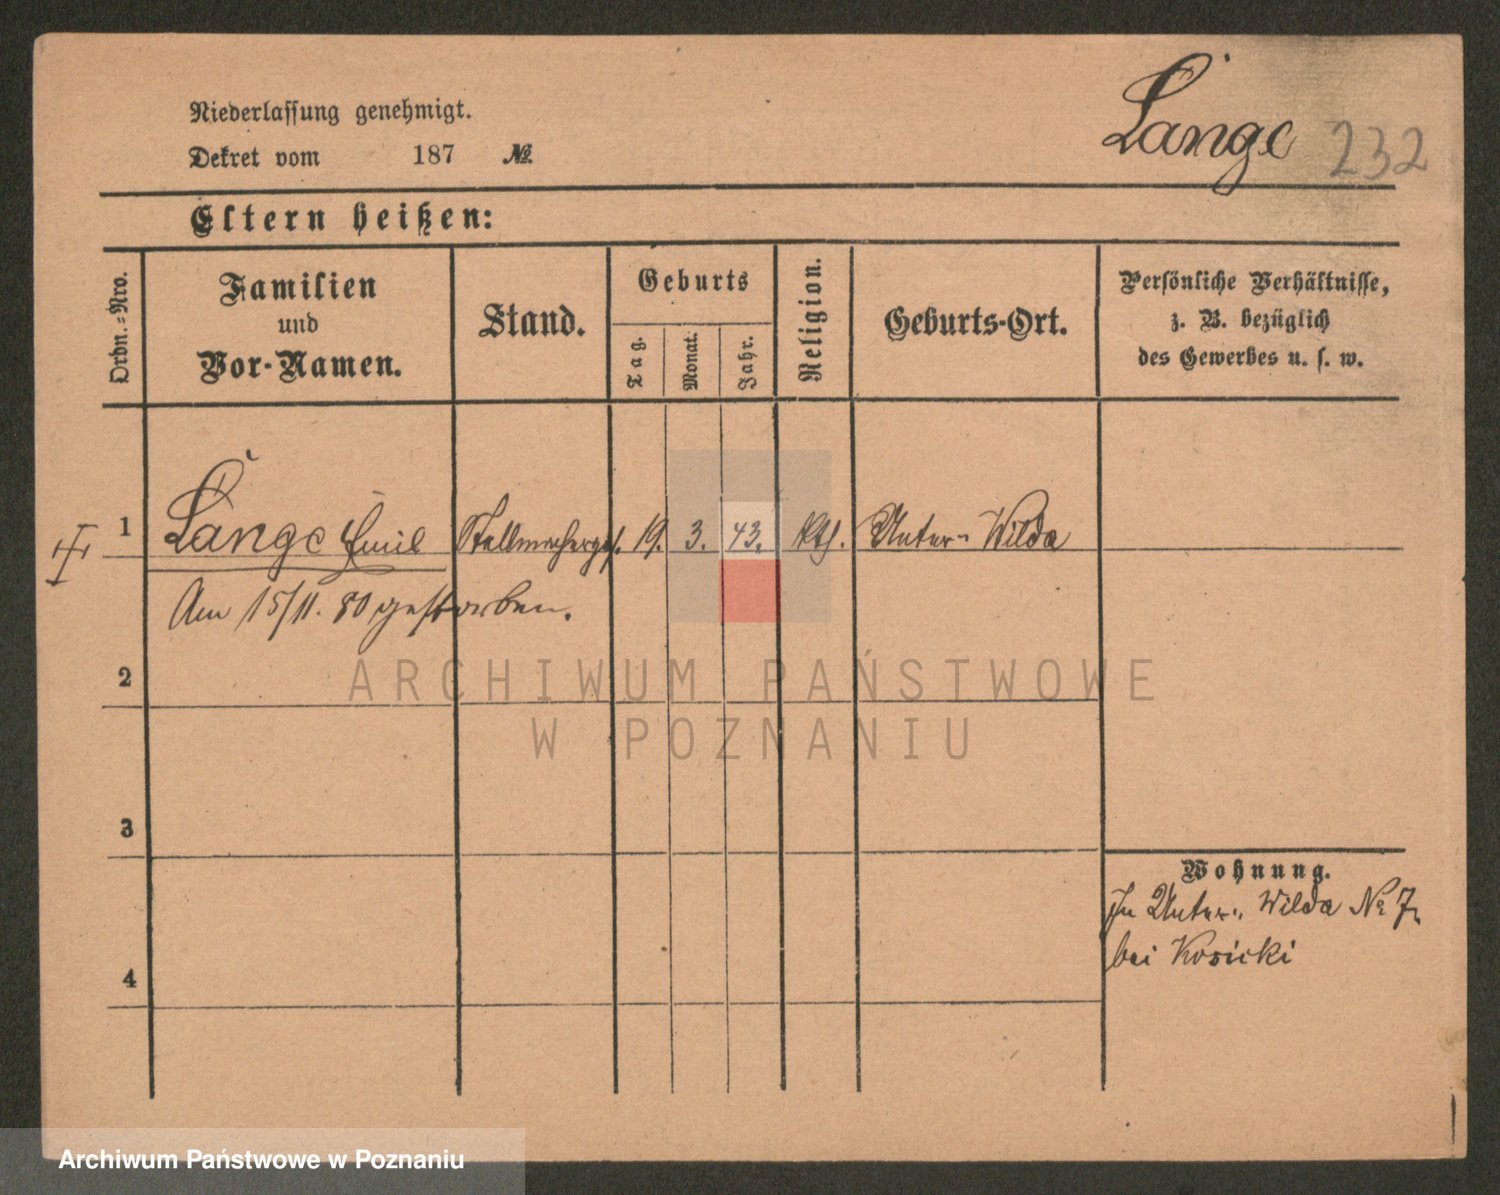 Lange 232
Niederlassung genehmigt.
Dekret vom 187 №
Eltern heißen:
Ordn.-Nro.
Familien
und
Vor-Namen.
Stand.
Geburts
Tag.
Monat.
Jahr.
Religion.
Geburts-Ort.
Persönliche Verhältnisse,
z. B. bezüglich
des Gewerbes u. s. w.
1 Lange Emil Stellmacherges. 19. 3. 43. kth. Unter-Wilda
Am 15/11. 80 gestorben.
2
ARCHIWUM PAŃSTWOWE
W POZNANIU
3
Wohnung.
In Unter-Wilda № 7,
bei Kosicki
4
Archiwum Państwowe w Poznaniu